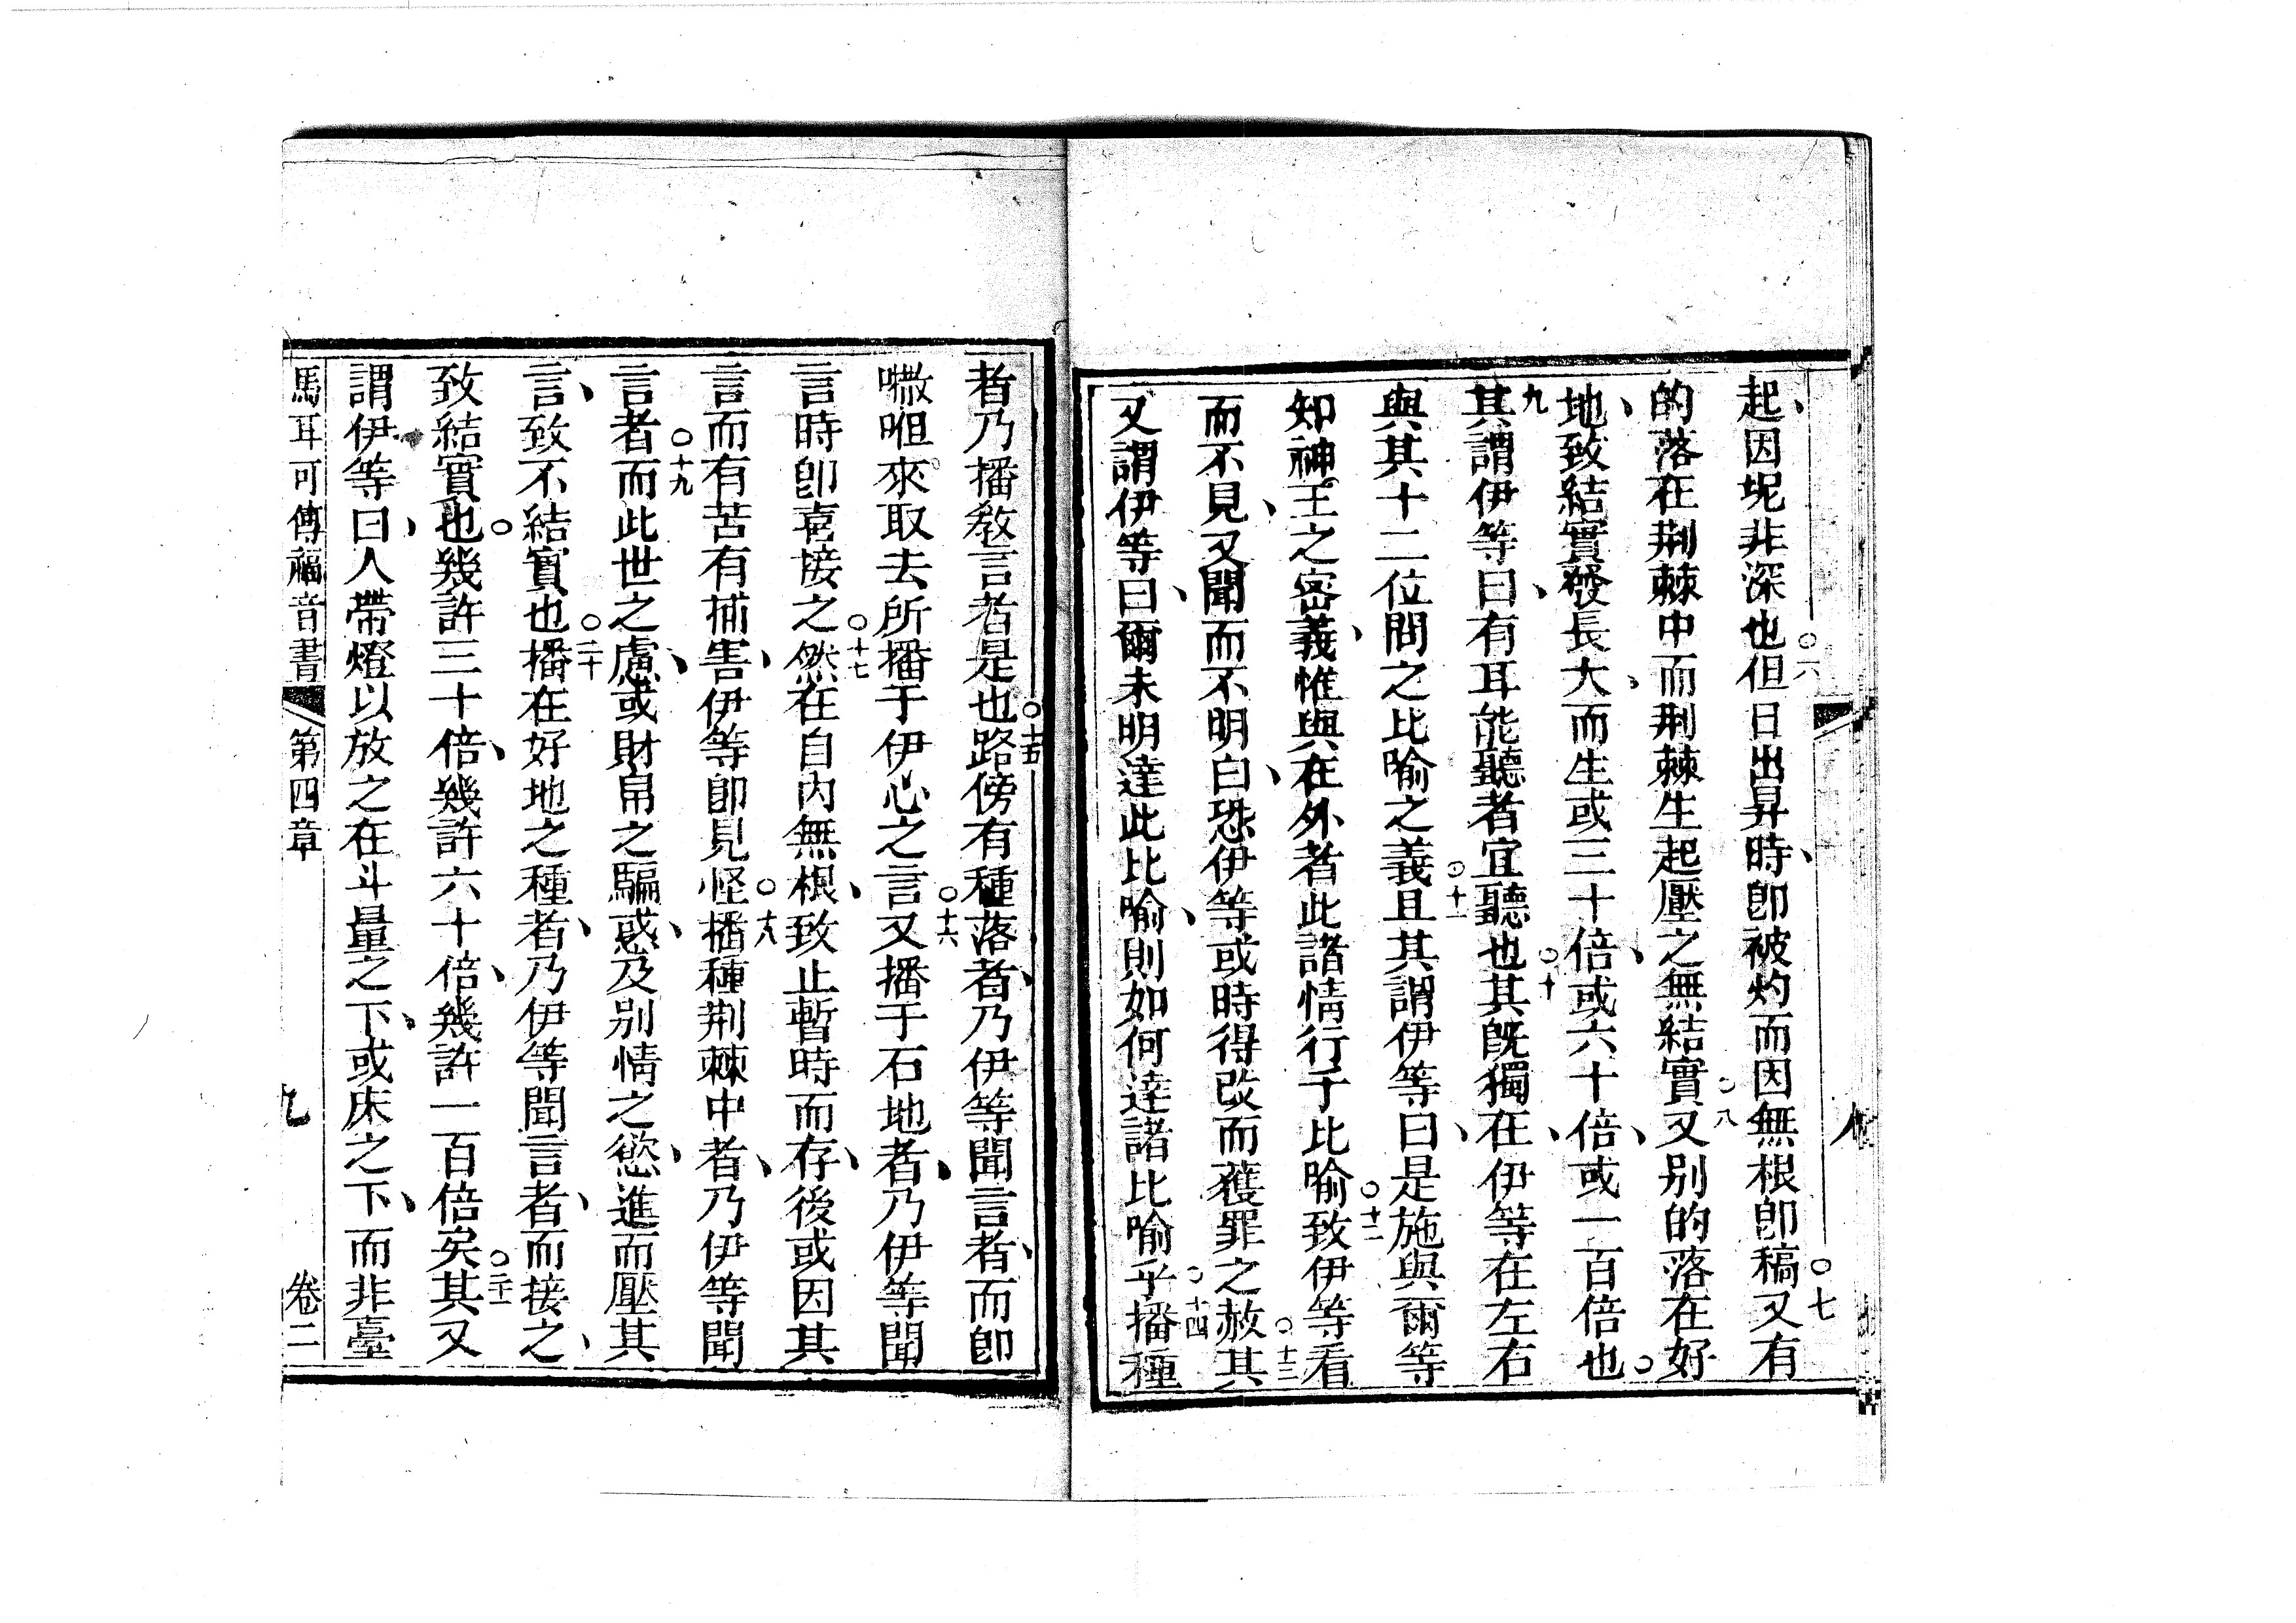 起、因坭非深也○六但日出昇時、卽被灼而因無根卽稿○七又有
的落在荆棘中而荆棘生起壓之無結實○八又别的落在好
地、致結實發長大、而生或三十倍、或六十倍、或一百倍也○
九其謂伊等曰、有耳能聽者宜聽也○十其旣獨在、伊等在左右
與其十二位問之比喻之義○十一且其謂伊等曰、是施與爾等
知神王之密義、惟與在外者此諸情行于比喻○十二致伊等看
而不見、又聞而不明白、恐伊等或時得改而獲罪之赦○十三其
又謂伊等曰、爾未明達此比喻、則如何達諸比喻乎○十四播種
者乃播教言者是也○十五路傍有種落者、乃伊等聞言者、而卽
㘔呾來取去所播于伊心之言○十六又播于石地者、乃伊等聞
言時卽喜接之○十七然在自内無根、致止暫時而存、後或因其
言而有苦有捕害、伊等卽見怪○十八播種荆棘中者、乃伊等聞
言者○十九而此世之慮、或財帛之騙惑、及别情之慾、進而壓其
言、致不結實也○二十播在好地之種者、乃伊等聞言者、而接之、
致結實也○幾許三十倍、幾許六十倍、幾許一百倍矣○二十一其又
謂伊等曰、人帶燈以放之在斗量之下、或床之下、而非臺
馬耳可傳福音書 第四章 九 卷二